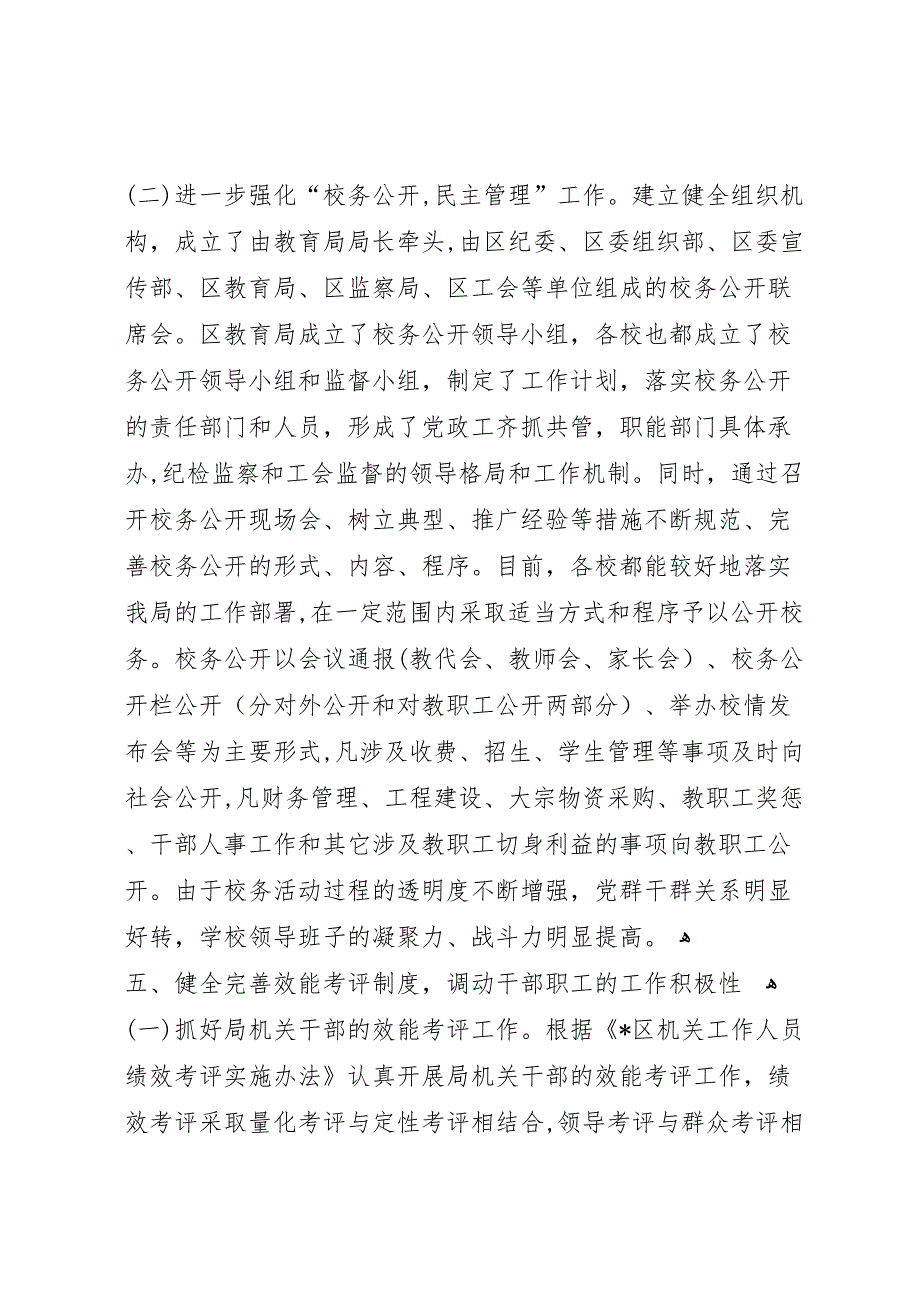 (二)进一步强化“校务公开,民主管理”工作。建立健全组织机
构，成立了由教育局局长牵头,由区纪委、区委组织部、区委宣
传部、区教育局、区监察局、区工会等单位组成的校务公开联
席会。区教育局成立了校务公开领导小组，各校也都成立了校
务公开领导小组和监督小组，制定了工作计划，落实校务公开
的责任部门和人员，形成了党政工齐抓共管，职能部门具体承
办,纪检监察和工会监督的领导格局和工作机制。同时，通过召
开校务公开现场会、树立典型、推广经验等措施不断规范、完
善校务公开的形式、内容、程序。目前，各校都能较好地落实
我局的工作部署,在一定范围内采取适当方式和程序予以公开校
务。校务公开以会议通报(教代会、教师会、家长会）、校务公
开栏公开（分对外公开和对教职工公开两部分）、举办校情发
布会等为主要形式,凡涉及收费、招生、学生管理等事项及时向
社会公开,凡财务管理、工程建设、大宗物资采购、教职工奖惩
、干部人事工作和其它涉及教职工切身利益的事项向教职工公
开。由于校务活动过程的透明度不断增强，党群干群关系明显
好转，学校领导班子的凝聚力、战斗力明显提高。 ﻫ
五、健全完善效能考评制度，调动干部职工的工作积极性 ﻫ
(一)抓好局机关干部的效能考评工作。根据《*区机关工作人员
绩效考评实施办法》认真开展局机关干部的效能考评工作，绩
效考评采取量化考评与定性考评相结合,领导考评与群众考评相